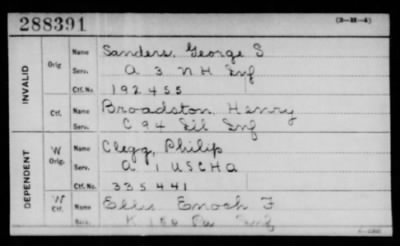 288391 (3-M-A)
INVALID
Orig.
Name Sanders, George S
Serv. A 3 N H Inf
Ctf. No. 192455
Ctf.
Name Broadston, Henry
Serv. C 94 Ill Inf
DEPENDENT
W
Orig.
Name Clegg, Philip
Serv. A 1 USCHA
Ctf. No. 335441
W
Ctf.
Name Ellis Enoch F
Serv. K Pa Inf